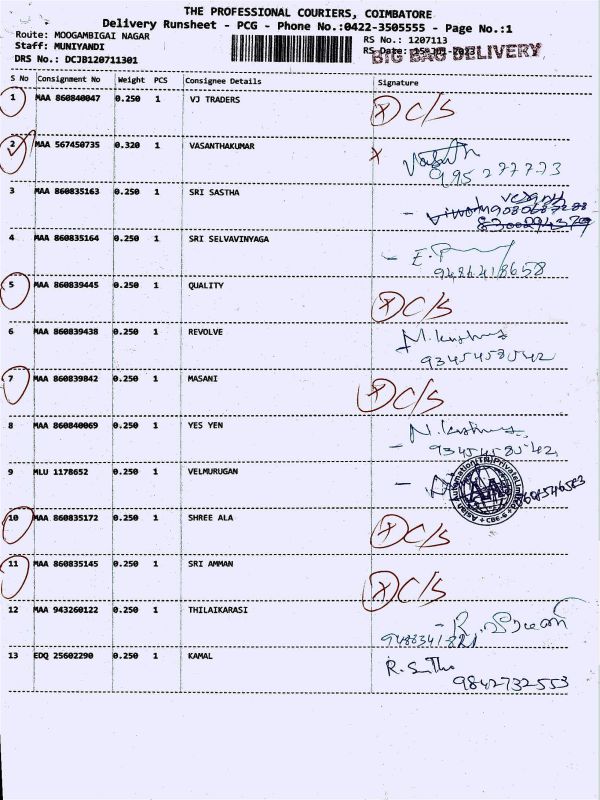 THE PROFESSIONAL COURIERS, COIMBATORE
Delivery Runsheet - PCG - Phone No.:0422-3505555 - Page No.:1
Route: MOOGAMBIGAI NAGAR
RS No.: 1207113
Staff: MUNIYANDI
RS Date:
BIG BAG DELIVERY
DRS No.: DCJB120711301
S No Consignment No Weight PCS Consignee Details Signature
1 MAA 860840047 0.250 1 VJ TRADERS X C/S
2 MAA 567450735 0.320 1 VASANTHAKUMAR X
3 MAA 860835163 0.250 1 SRI SASTHA
4 MAA 860835164 0.250 1 SRI SELVAVINYAGA
9486418658
5 MAA 860839445 0.250 1 QUALITY X C/S
6 MAA 860839438 0.250 1 REVOLVE
9345458542
7 MAA 860839842 0.250 1 MASANI X C/S
8 MAA 860840069 0.250 1 YES YEN
9345458542
9 MLU 1178652 0.250 1 VELMURUGAN
10 MAA 860835172 0.250 1 SHREE ALA X C/S
11 MAA 860835145 0.250 1 SRI AMMAN X C/S
12 MAA 943260122 0.250 1 THILAIKARASI
9488341821
13 EDQ 25602290 0.250 1 KAMAL
9842732553